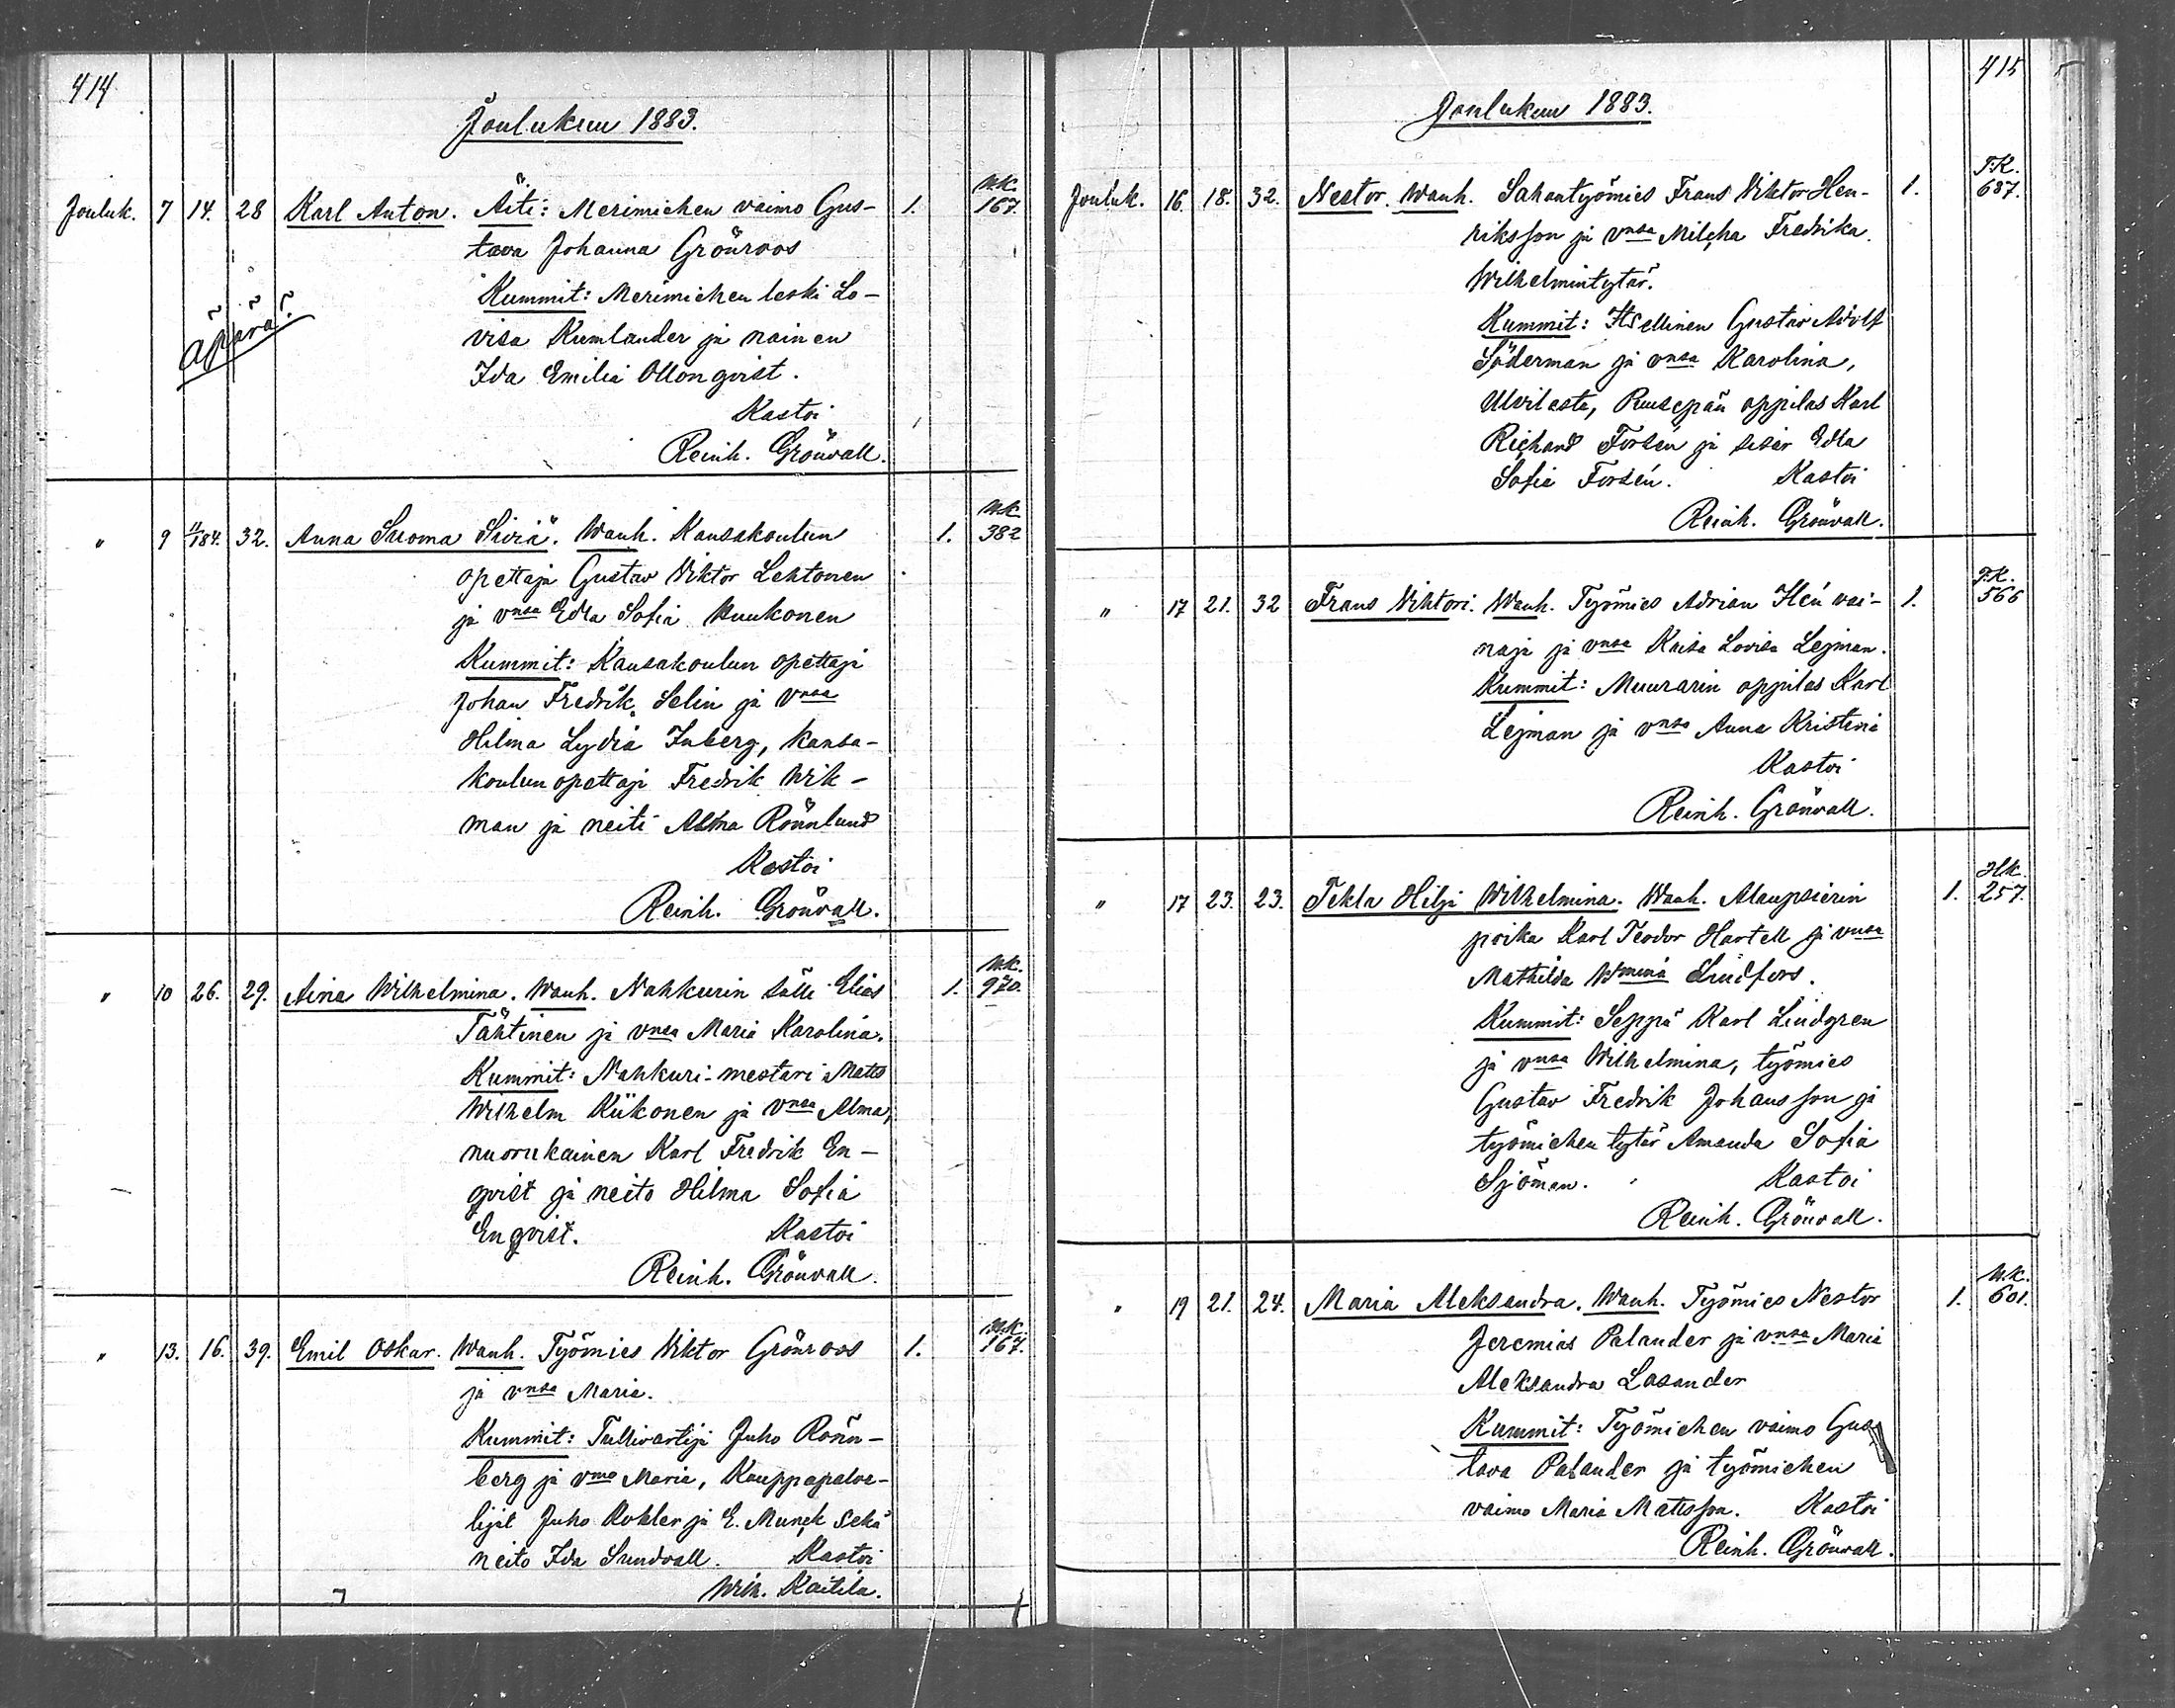 414
Joulukuu 1883.
Jouluk. 7 14. 28 Karl Anton. Äiti: Merimiehen vaimo Gus- 1. U.K. 167.
tava Johanna Grönroos
Kummit: Merimiehen leski Lo-
äpärä.
visa Kumlander ja nainen
Ida Emilia Ollonqvist.
Kastoi
Reinh. Grönvall.
" 9 11/1 84. 32. Anna Suoma Siviä. Wanh. Kansakoulun 1. U.K. 382
opettaja Gustav Viktor Lehtonen
ja vnsa Edla Sofia Kuukonen
Kummit: Kansakoulun opettaja
Johan Fredrik Selin ja vnsa
Hilma Lydia Inberg, kansa-
koulun opettaja Fredrik Wik-
man ja neiti Alma Rönnlund
Kastoi
Reinh. Grönvall.
" 10 26. 29. Aina Wilhelmina. Wanh. Nahkurin sälli Elias 1. U.K. 970.
Tähtinen ja vnsa Maria Karolina.
Kummit: Nahkuri-mestari Matts
Wilhelm Kiikonen ja vnsa Alma,
nuorukainen Karl Fredrik En-
qvist ja neito Hilma Sofia
Enqvist. Kastoi
Reinh. Grönvall.
" 13. 16. 39. Emil Oskar. Wanh. Työmies Viktor Grönroos 1. U.K. 167.
ja vnsa Maria.
Kummit: Tullivartija Juho Rönn-
berg ja vmo Maria, Kauppapalve-
lijat Juho Kohler ja E. Munck sekä
neito Ida Sundvall. Kastoi
Wilh. Kaitila.
415
Joulukuu 1883.
Jouluk. 16. 18. 32. Nestor. Wanh. Sahantyömies Frans Viktor Hen- 1. T.K. 687.
riksson ja vnsa Milcha Fredrika
Wilhelmintytär.
Kummit: Itsellinen Gustav Adolf
Söderman ja vnsa Karolina,
Ulvilasta, Puusepän oppilas Karl
Richard Forsén ja sisar Edla
Sofia Forsén. Kastoi
Reinh. Grönvall.
" 17 21. 32 Frans Viktori. Wanh. Työmies Adrian Hén vai- 1. T.K. 566
naja ja vnsa Kaisa Lovisa Lejman.
Kummit: Muurarin oppilas Karl
Lejman ja vnsa Anna Kristina
Kastoi
Reinh. Grönvall.
" 17 23. 23. Tekla Hilja Wilhelmina. Wanh. Alaupsierin 1. H.K. 257.
poika Karl Teodor Hartell ja vnsa
Mathilda Wmina Lindfors.
Kummit: Seppä Karl Lindgren
ja vnsa Wilhelmina, työmies
Gustav Fredrik Johansson ja
työmiehen tytär Amanda Sofia
Sjöman. Kastoi
Reinh. Grönvall.
" 19 21. 24. Maria Aleksandra. Wanh. Työmies Nestor 1. U.K. 601.
Jeremias Palander ja vnsa Maria
Aleksandra Lasander
Kummit: Työmiehen vaimo Gus
tava Palander ja työmiehen
vaimo Maria Matsson. Kastoi
Reinh. Grönvall.